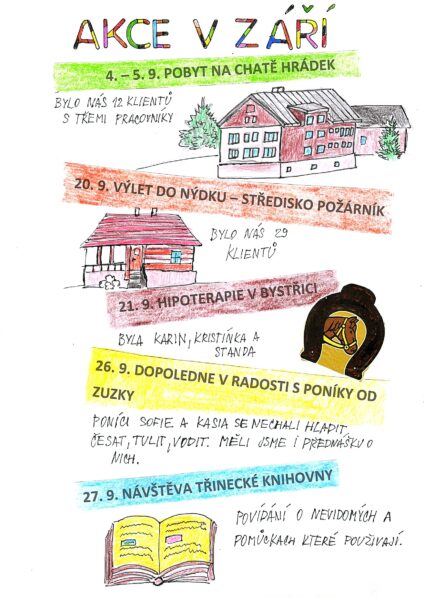 AKCE V ZÁŘÍ
4. – 5. 9. POBYT NA CHATĚ HRÁDEK
BYLO NÁS 12 KLIENTŮ
S TŘEMI PRACOVNÍKY
20. 9. VÝLET DO NÝDKU – STŘEDISKO POŽÁRNÍK
BYLO NÁS 29
KLIENTŮ
21. 9. HIPOTERAPIE V BYSTŘICI
BYLA KARIN, KRISTÍNKA A
STANDA
26. 9. DOPOLEDNE V RADOSTI S PONÍKY OD
ZUZKY
PONÍCI SOFIE A KASIA SE NECHALI HLADIT,
ČESAT, TULIT, VODIT. MĚLI JSME I PŘEDNÁŠKU O
NICH.
27. 9. NÁVŠTĚVA TŘINECKÉ KNIHOVNY
POVÍDÁNÍ O NEVIDOMÝCH A
POMŮCKACH KTERÉ POUŽÍVAJÍ.